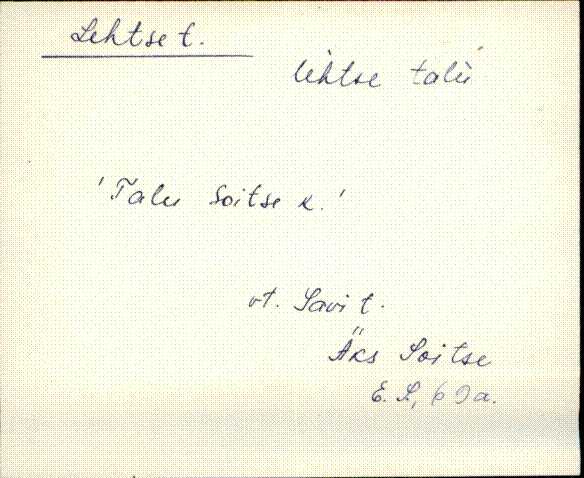 Lehtse t.
lèhtse talù
'Talu Soitse k.'
vt. Savi t.
Äks Soitse
E. S., 69a.